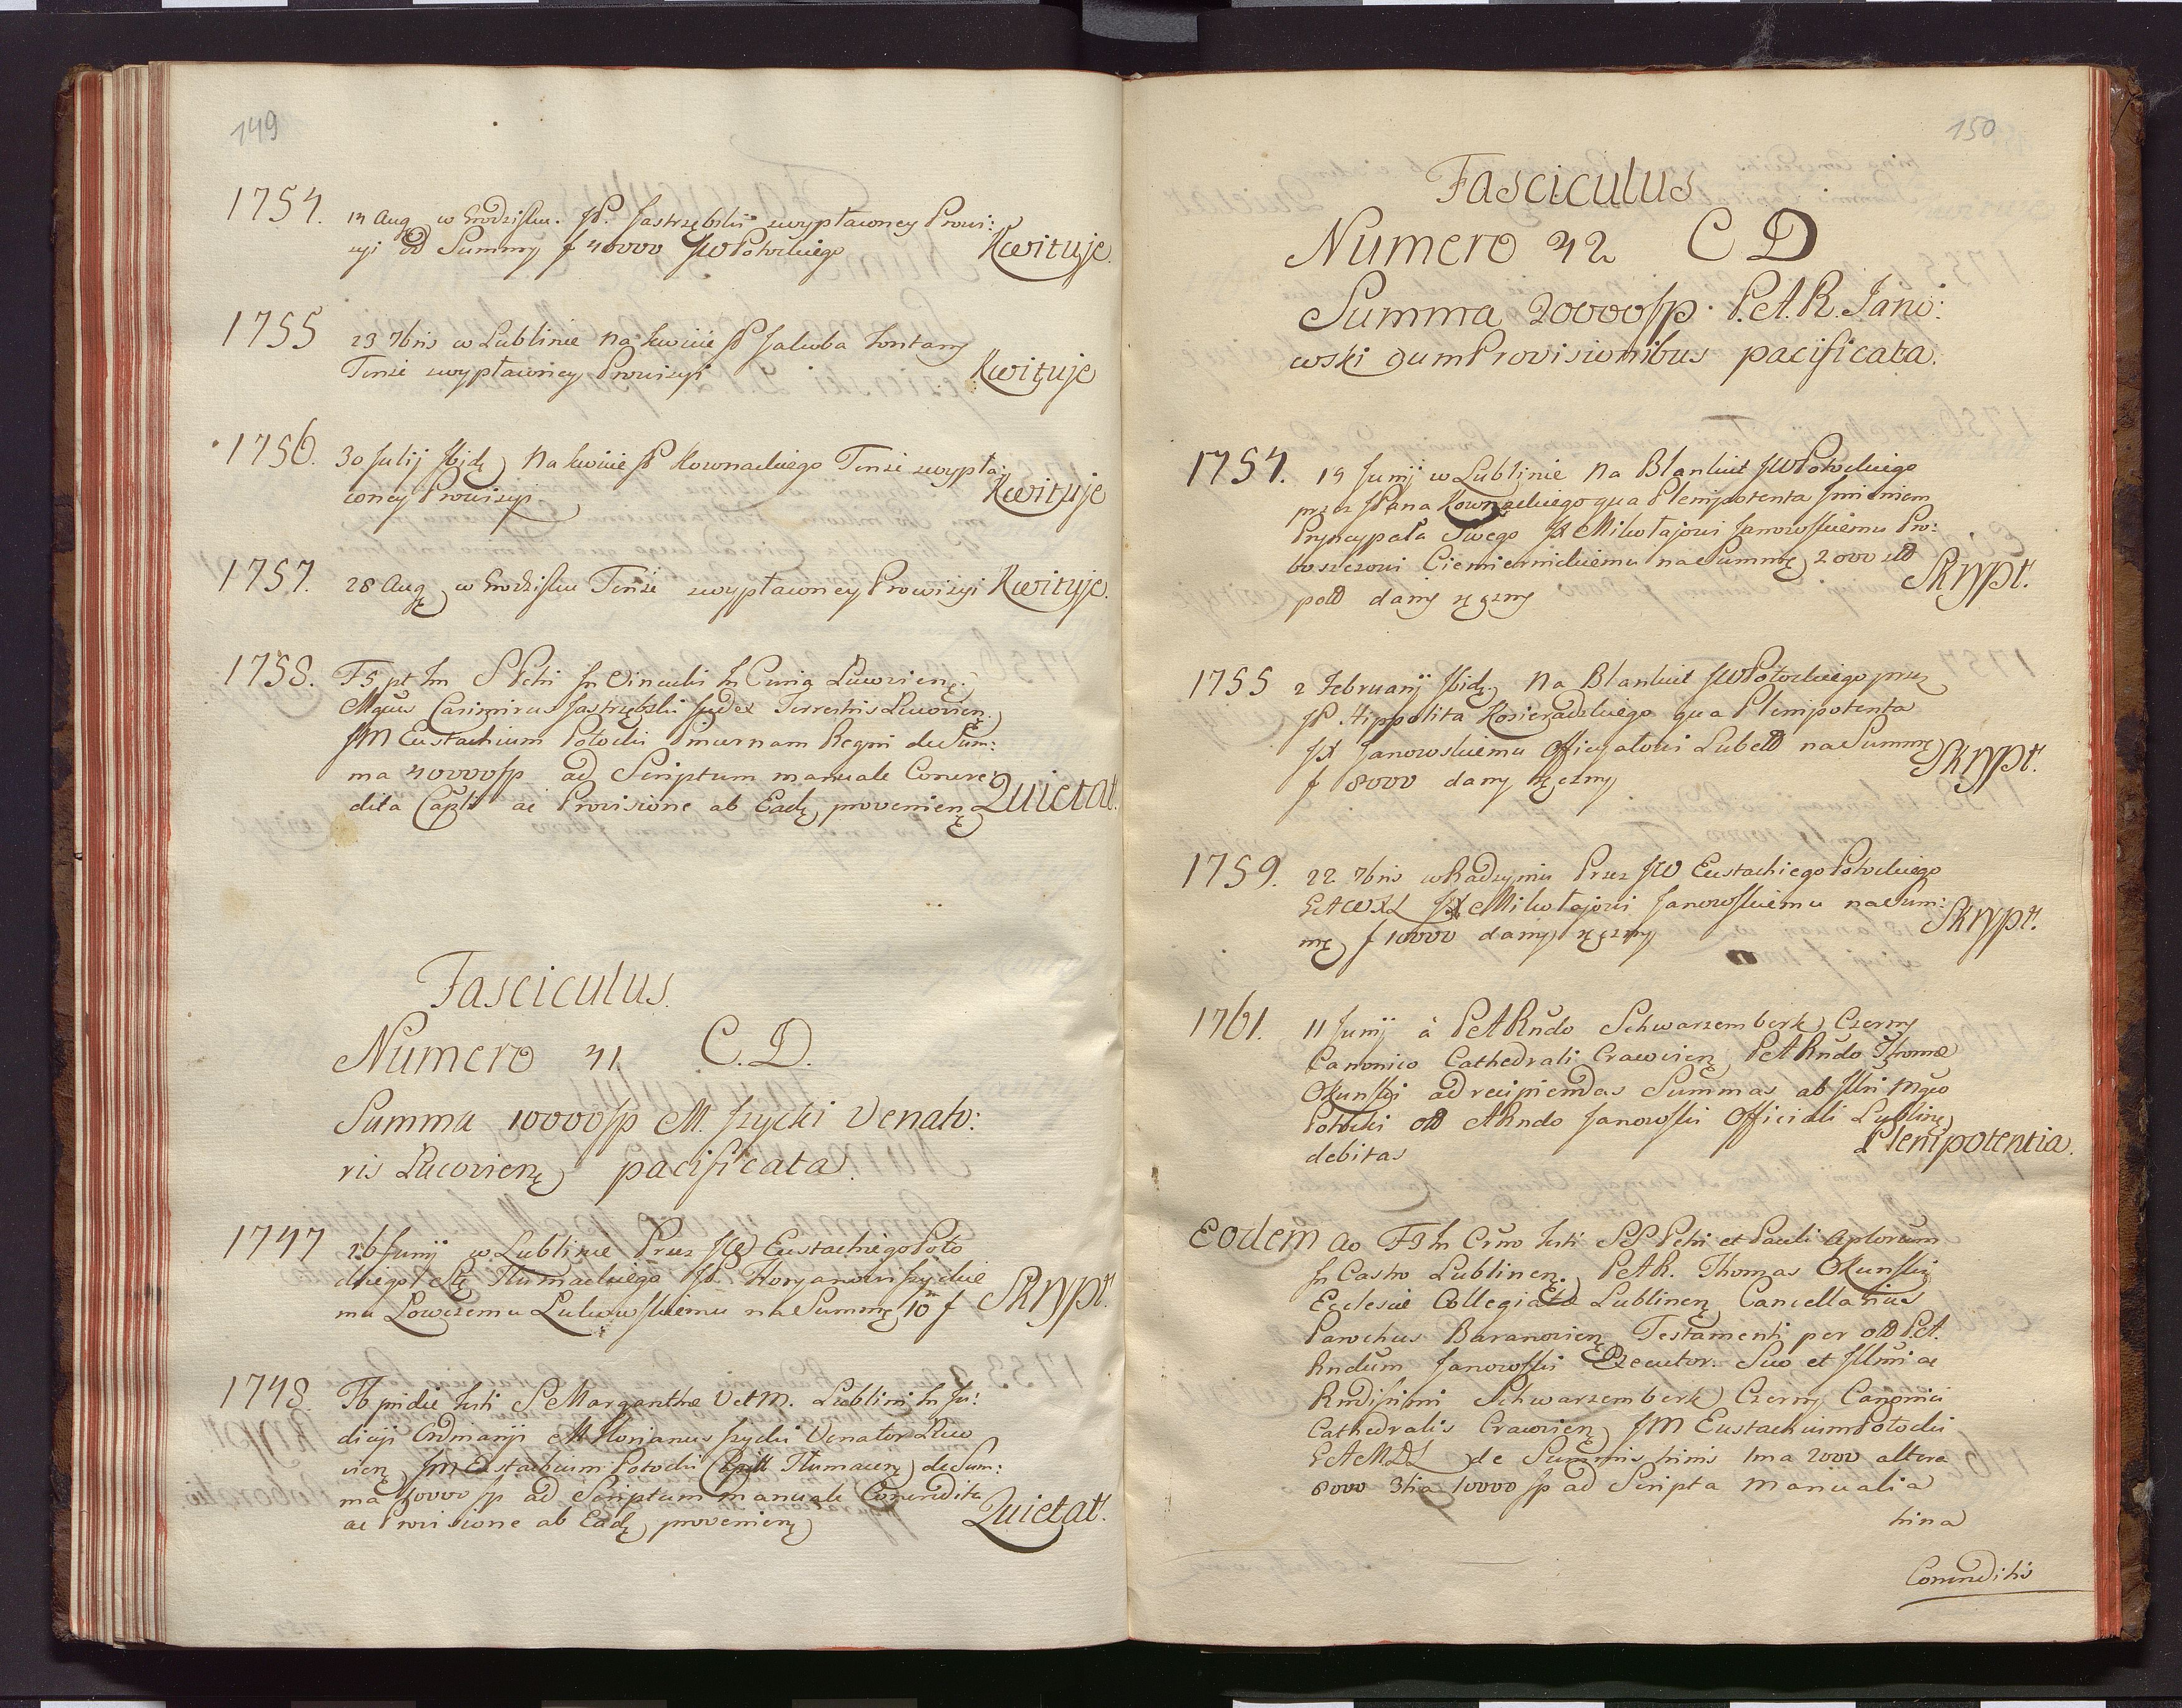 149
1754. 14 Aug w Grodzisku. JP. Jastrzębski wypłaconey Prowi:
zyi od Summy f 40000 JW Potockiego Kwituje.
1755 23 7bris w Lublinie Na kwicie JP Jakuba
Tenże wypłaconey Prowizyi Kwituje
1756. 30 Julij Ibidę Na kwicie JP Kownackiego Tenże wypła:
coney Prowizyi Kwituje
1757. 28 Augę w Grodzisku Tenże wypłaconey Prowizyi Kwituje.
1758. F5 pt Fm S Petri In Vinculi In Curia Lucovienę.
Mgcus Casimirus Jastrzębski Judex Terrestris Lucovienę
JM Eustachium Potocki Pincernam Regni de Sum:
ma 40000 fp ad Scriptum manuale Concre:
dita Caplt ac Provisione ab Eadę provenienę Quietat.
Fasciculus.
Numero 41. C.D.
Summa 10000 fp M. Jzycki Venato:
ris Lucovienę pacificata.
1747 26 Junij w Lublinie Przez JW Eustachiego Poto
ckiego Stę Tłumackiego JP. Floryanowi Jzyckie
mu Łowczemu Łukowskiemu na Summę 10 f Skrypt.
1748. F6 pridie Festi S Margarithæ V et M. Lublini In Ju:
dicij Ordinarij M Florianus Jzycki Venator Luco
vienę JM Eustachium Potocki Capit Tłumacenę de Sum:
ma 10000 fp ad Scriptum manuale Concredita
ac Provisione ab Eadę provenienę Quietat.
150
Fasciculus
Numero 42 C D
Summa 20000 fp. P.A.R. Jano:
wski cum Provisionibus pacificata.
1754. 19 Junij w Lublinie Na Blankiet JW Potockiego
przez JPana Kownackiego qua Plenipotenta Imieniem
Pryncypała Swego JX Mikołajowi Janowskiemu Pro:
boszczowi Ciemiernickiemu na Summę 2000 złł
pold dany ręczny Skrypt.
1755 2 Februarij Ibidę Na Blankiet JW Potockiego przez
JP. Hippolita Kosieradzkiego qua Plenipotenta
JX Janowskiemu Officyałowi Lubelł na Summę
f 8000 dany ręczny Skrypt.
1759. 22 7bris w Radzyniu Przez JW Eustachiego Potockiego
GAWXL JX Mikołajowi Janowskiemu na Sum:
mę f 10000 dany ręczny Skrypt.
1761. 11 Junij à PetRndo Schwarzemberk Czerny
Canonico Cathedrali Cracvienę PetRndo Thomæ
Okunski ad recipiendas Summas ab Illri Mgco
Potocki olł ARndo Janowski Officiali Lublinę
debitas Plenipotentia.
Eodem Ao F3 In Cŕno Festi SS Petri et Pauli Aplorum
In Castro Lublinenę. PetR. Thomas Okunski
Ecclesiæ Collegiatæ Lublinenę Cancellarius
Parochus Baranovienę Testamenti per olł Pet.
Rndum Janowski Executor. Suo et Illmi ac
Rndissimi Schwarzemberk Czerny Canonici
Cathedralis Cracvienę JM Eustachium Potocki
GAMDL de Summis trinis 1ma 2000 altera
8000 3tia 10000 fp ad Scripta Manualia
trina
Concreditis